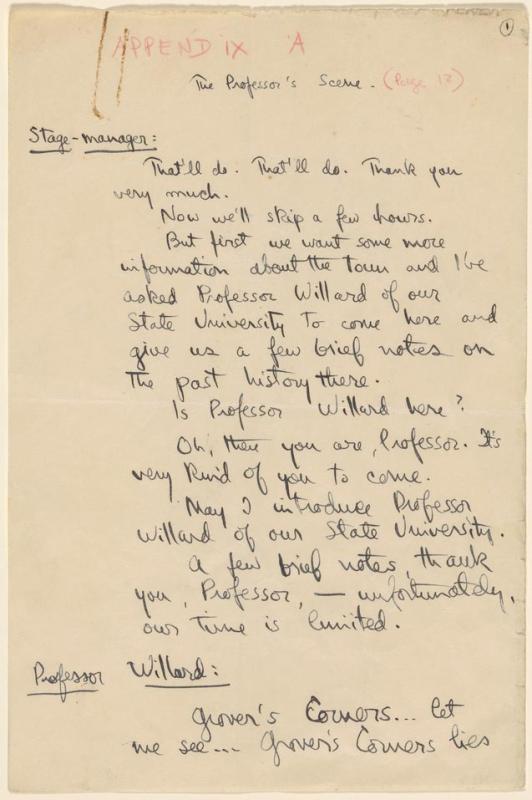 ①
APPENDIX A
The Professor's Scene. (Page 12)
Stage-manager:
That'll do. That'll do. Thank you
very much.
Now we'll skip a few hours.
But first we want some more
information about the town and I've
asked Professor Willard of our
State University to come here and
give us a few brief notes on
the past history there.
Is Professor Willard here?
Oh, there you are, Professor. It's
very kind of you to come.
May I introduce Professor
Willard of our State University.
A few brief notes, thank
you, Professor, — unfortunately,
our time is limited.
Professor Willard:
Grover's Corners... let
me see... Grover's Corners lies